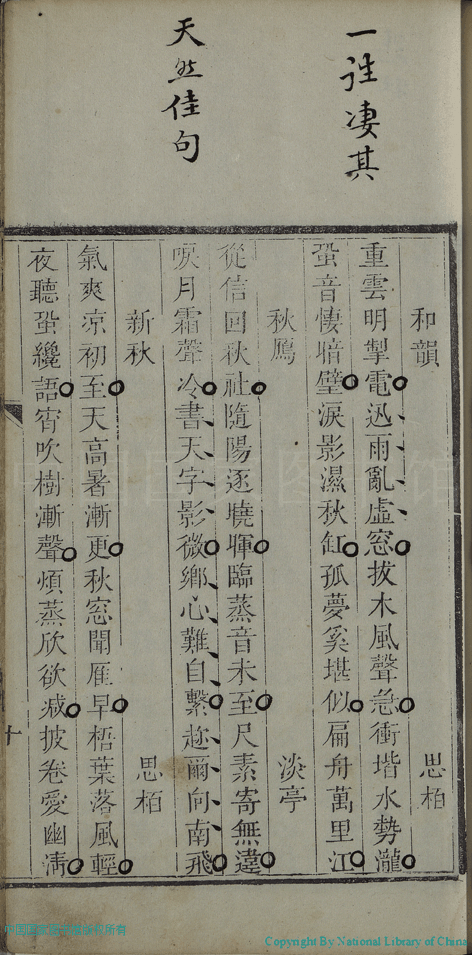 一往凄其
天然佳句
和韻 思柏
重雲明掣電迅雨亂虛窓拔木風聲急衝堦水勢瀧
蛩音悽暗壁淚影濕秋缸孤夢奚堪似扁舟萬里江
秋鴈 淡亭
從信回秋社隨陽逐曉暉臨蒸音未至尺素寄無違
唳月霜聲冷書天字影微鄉心難自繫趂爾向南飛
新秋 思柏
氣爽凉初至天高暑漸更秋窓聞雁早梧葉落風輕
夜聽蛩纔語宵吹樹漸聲煩蒸欣欲减披卷愛幽淸
十
Copyright By National Library of China